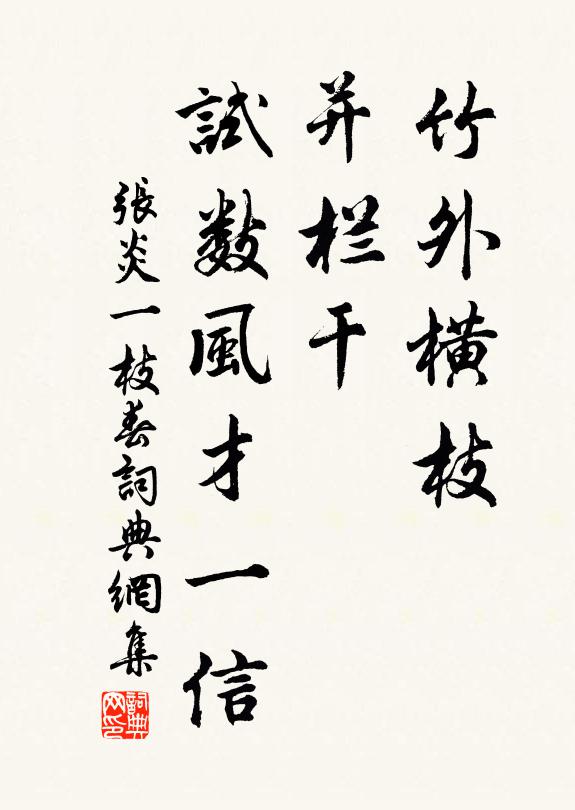 竹外横枝
并栏干
試數風才一信
張炎一枝春詞典網集
詞典網印